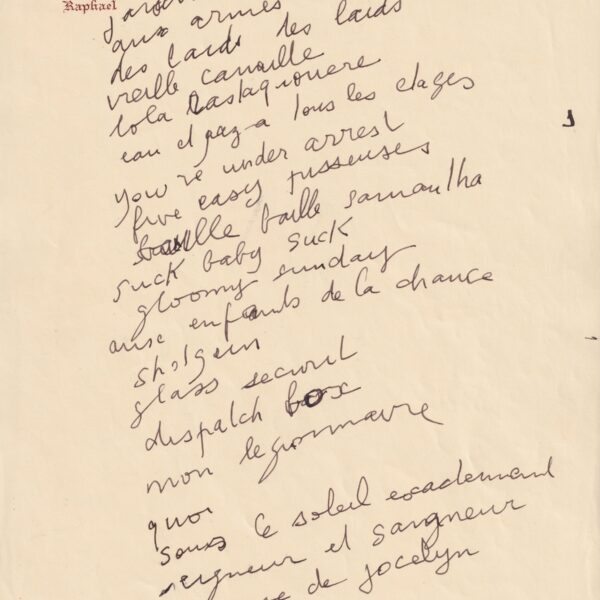 Raphael
aux armes
des laids des laids
vieille canaille
lola Rastaquouere
eau et gaz a tous les etages
you're under arrest
five easy pisseuses
baille baille samantha
suck baby suck
gloomy sunday
aux enfants de la chance
shotgun
glass securit
dispatch box
mon legionnaire
quoi
sous le soleil exactement
seigneur et saigneur
de jocelyn